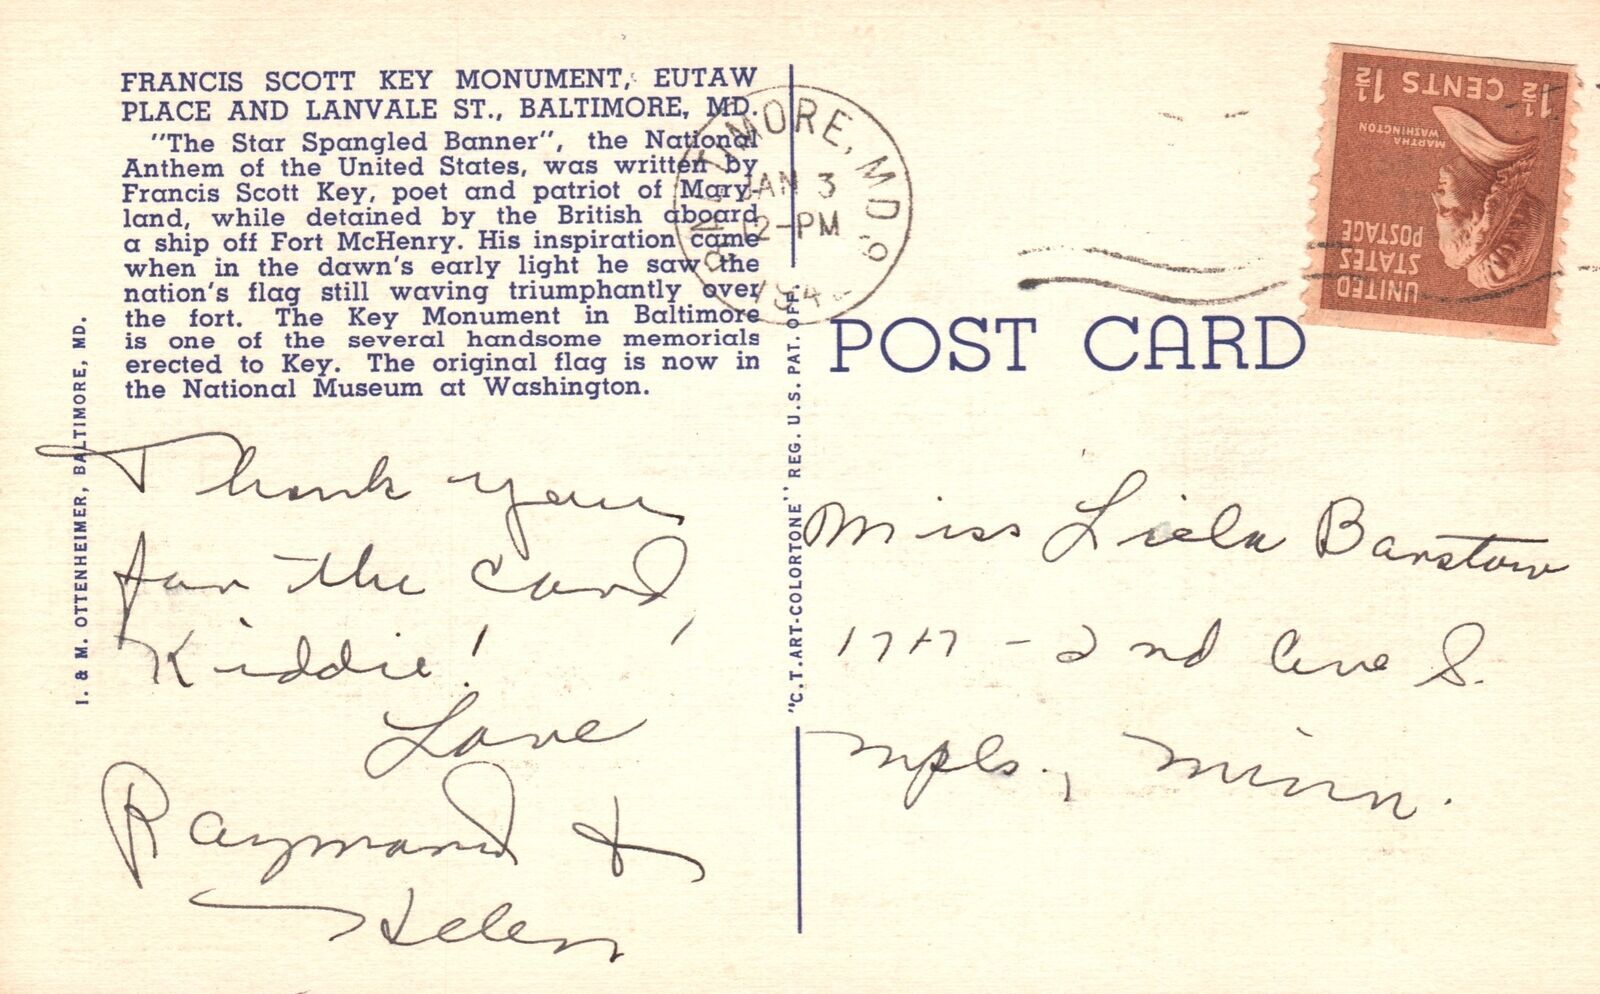 FRANCIS SCOTT KEY MONUMENT, EUTAW
PLACE AND LANVALE ST., BALTIMORE, MD.
"The Star Spangled Banner", the National
Anthem of the United States, was written by
Francis Scott Key, poet and patriot of Mary-
land, while detained by the British aboard
a ship off Fort McHenry. His inspiration came
when in the dawn's early light he saw the
nation's flag still waving triumphantly over
the fort. The Key Monument in Baltimore
is one of the several handsome memorials
erected to Key. The original flag is now in
the National Museum at Washington.
I. & M. OTTENHEIMER, BALTIMORE, MD.
Thank you
for the card,
Kiddie!
Love
Raymond &
Helen
"C.T. ART-COLORTONE" REG. U.S. PAT. OFF.
BALTIMORE, MD. 9
JAN 3
12-PM
194
POST CARD
1½ CENTS 1½
MARTHA
WASHINGTON
UNITED
STATES
POSTAGE
Miss Liela Barstow
1717 - 2nd Ave S.
Mpls., Minn.